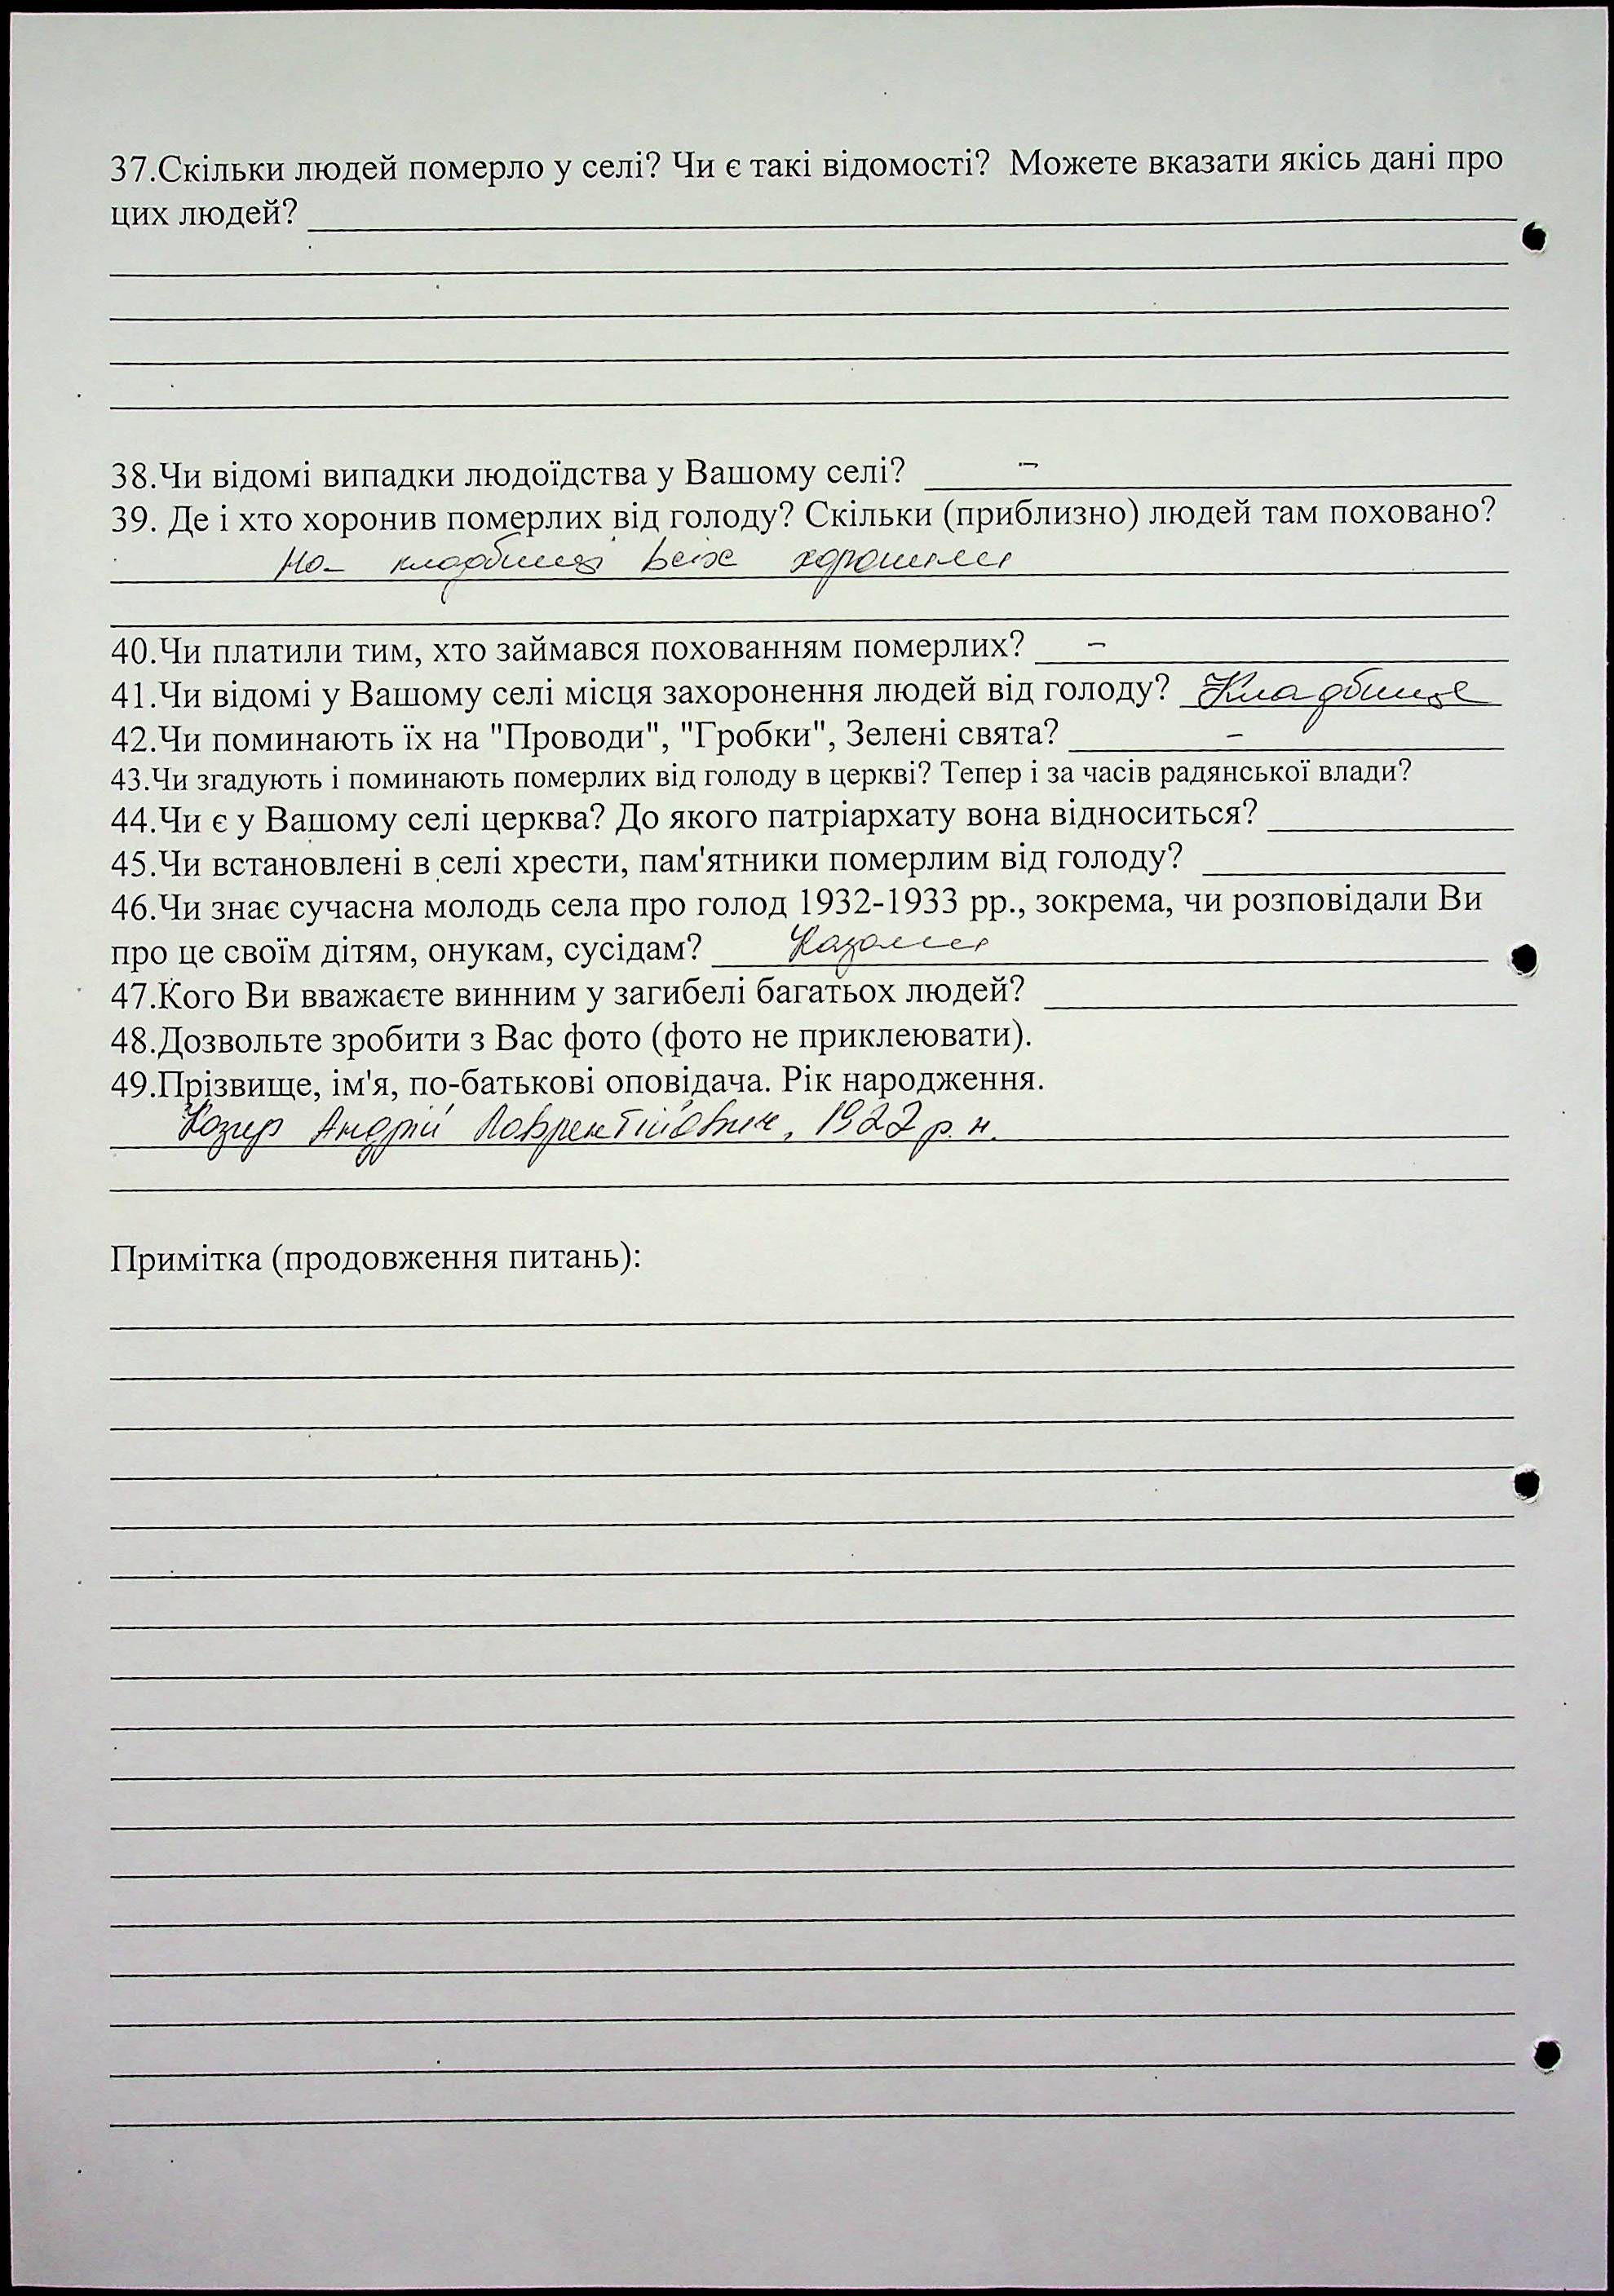 37.Скільки людей померло у селі? Чи є такі відомості? Можете вказати якісь дані про
цих людей?
38.Чи відомі випадки людоїдства у Вашому селі? –
39. Де і хто хоронив померлих від голоду? Скільки (приблизно) людей там поховано?
На кладбищі всіх хоронили
40.Чи платили тим, хто займався похованням померлих? –
41.Чи відомі у Вашому селі місця захоронення людей від голоду? Кладбище
42.Чи поминають їх на "Проводи", "Гробки", Зелені свята? –
43.Чи згадують і поминають померлих від голоду в церкві? Тепер і за часів радянської влади?
44.Чи є у Вашому селі церква? До якого патріархату вона відноситься?
45.Чи встановлені в селі хрести, пам'ятники померлим від голоду?
46.Чи знає сучасна молодь села про голод 1932-1933 рр., зокрема, чи розповідали Ви
про це своїм дітям, онукам, сусідам? Казали
47.Кого Ви вважаєте винним у загибелі багатьох людей?
48.Дозвольте зробити з Вас фото (фото не приклеювати).
49.Прізвище, ім'я, по-батькові оповідача. Рік народження.
Козир Андрій Лаврентійович, 1922 р. н.
Примітка (продовження питань):